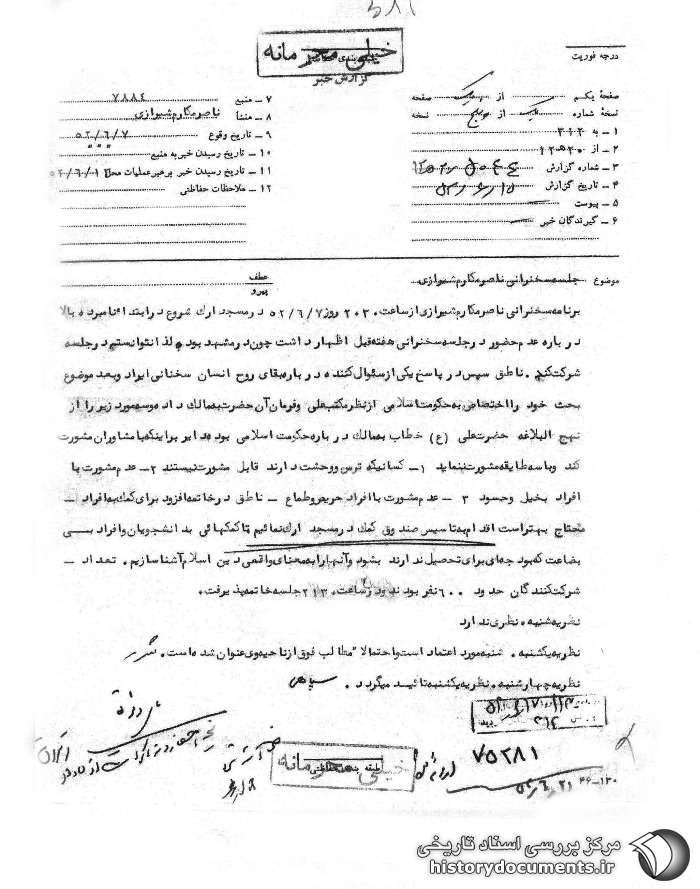 خیلی محرمانه
گزارش خبر
درجه فوریت
صفحه یکم از یک صفحه
نسخه شماره یک از پنج نسخه
۱ ـ به ۳۱۲
۲ ـ از ۲۰ ه‍ ۱۲
۳ ـ شماره گزارش
۴ ـ تاریخ گزارش ۱۵ ر ۶ ر ۵۲
۵ ـ پیوست
۶ ـ گیرندگان خبر
۷ ـ منبع ۷۸۸۴
۸ ـ منشأ ناصر مکارم شیرازی
۹ ـ تاریخ وقوع ۵۲/۶/۷
۱۰ ـ تاریخ رسیدن خبر به منبع
۱۱ ـ تاریخ رسیدن خبر به رهبر عملیات محل
۱۲ ـ ملاحظات حفاظتی
موضوع جلسه سخنرانی ناصر مکارم شیرازی
عطف
پیرو
برنامه سخنرانی ناصر مکارم شیرازی از ساعت ۲۰۳۰ روز ۵۲/۶/۷ در مسجد ارک شروع در ابتدا نامبرده بالا
در باره عدم حضور در جلسه سخنرانی هفته قبل اظهار داشت چون در مشهد بودم لذا نتوانستم در جلسه
شرکت کنم . ناطق سپس در پاسخ یکی از سئوال کننده در باره بقای روح انسان سخنانی ایراد و بعد موضوع
بحث خود را اختصاص به حکومت اسلامی از نظر مکتب علی و فرمان آن حضرت به مالک داد و سه مورد زیر را از
نهج البلاغه حضرت علی (ع) خطاب به مالک در باره حکومت اسلامی بود دایر بر اینکه با مشاوران مشورت
کند و با سه طایفه مشورت ننماید ۱ـ کسانیکه ترس و وحشت دارند قابل مشورت نیستند ۲ـ عدم مشورت با
افراد بخیل و حسود ۳ ـ عدم مشورت با افراد حریص و طماع ـ ناطق در خاتمه افزود برای کمک به افراد ـ
محتاج بهتر است اقدام به تاسیس صندوق کمک در مسجد ارک نمائیم تا کمکهائی به دانشجویان و افراد بی
بضاعت که بودجه ای برای تحصیل ندارند بشود و آنها را به معنای واقعی دین اسلام آشنا سازیم . تعداد ـ
شرکت کنندگان حدود ۶۰۰ نفر بودند و در ساعت جلسه خاتمه پذیرفت .
نظریه شنبه . نظری ندارد
نظریه یکشنبه . شنبه مورد اعتماد است و احتمالا" مطالب فوق از ناحیه وی عنوان شده است .
نظریه چهارشنبه . نظریه یکشنبه تائید میگردد .
۷۵۲۸۱
خیلی محرمانه
۴۶-۱۳۰
مرکز بررسی اسناد تاریخی
historydocuments.ir